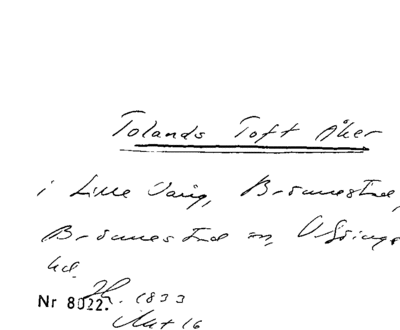 Tolands Toft Åker
i Lille Vång, Brönnestad,
Brönnestad sn, V Göinge
hd.
Nr 8022. 1833
Akt 16